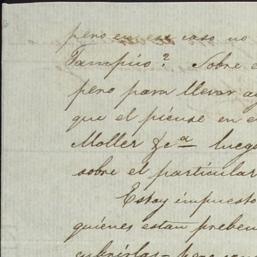 pero en ese caso no
Tampico? Sobre e
pero para llevar a
que el piense en e
Moller &cª luego
sobre el particular
Estoy impuesto
quienes estan
cubrirlas pero